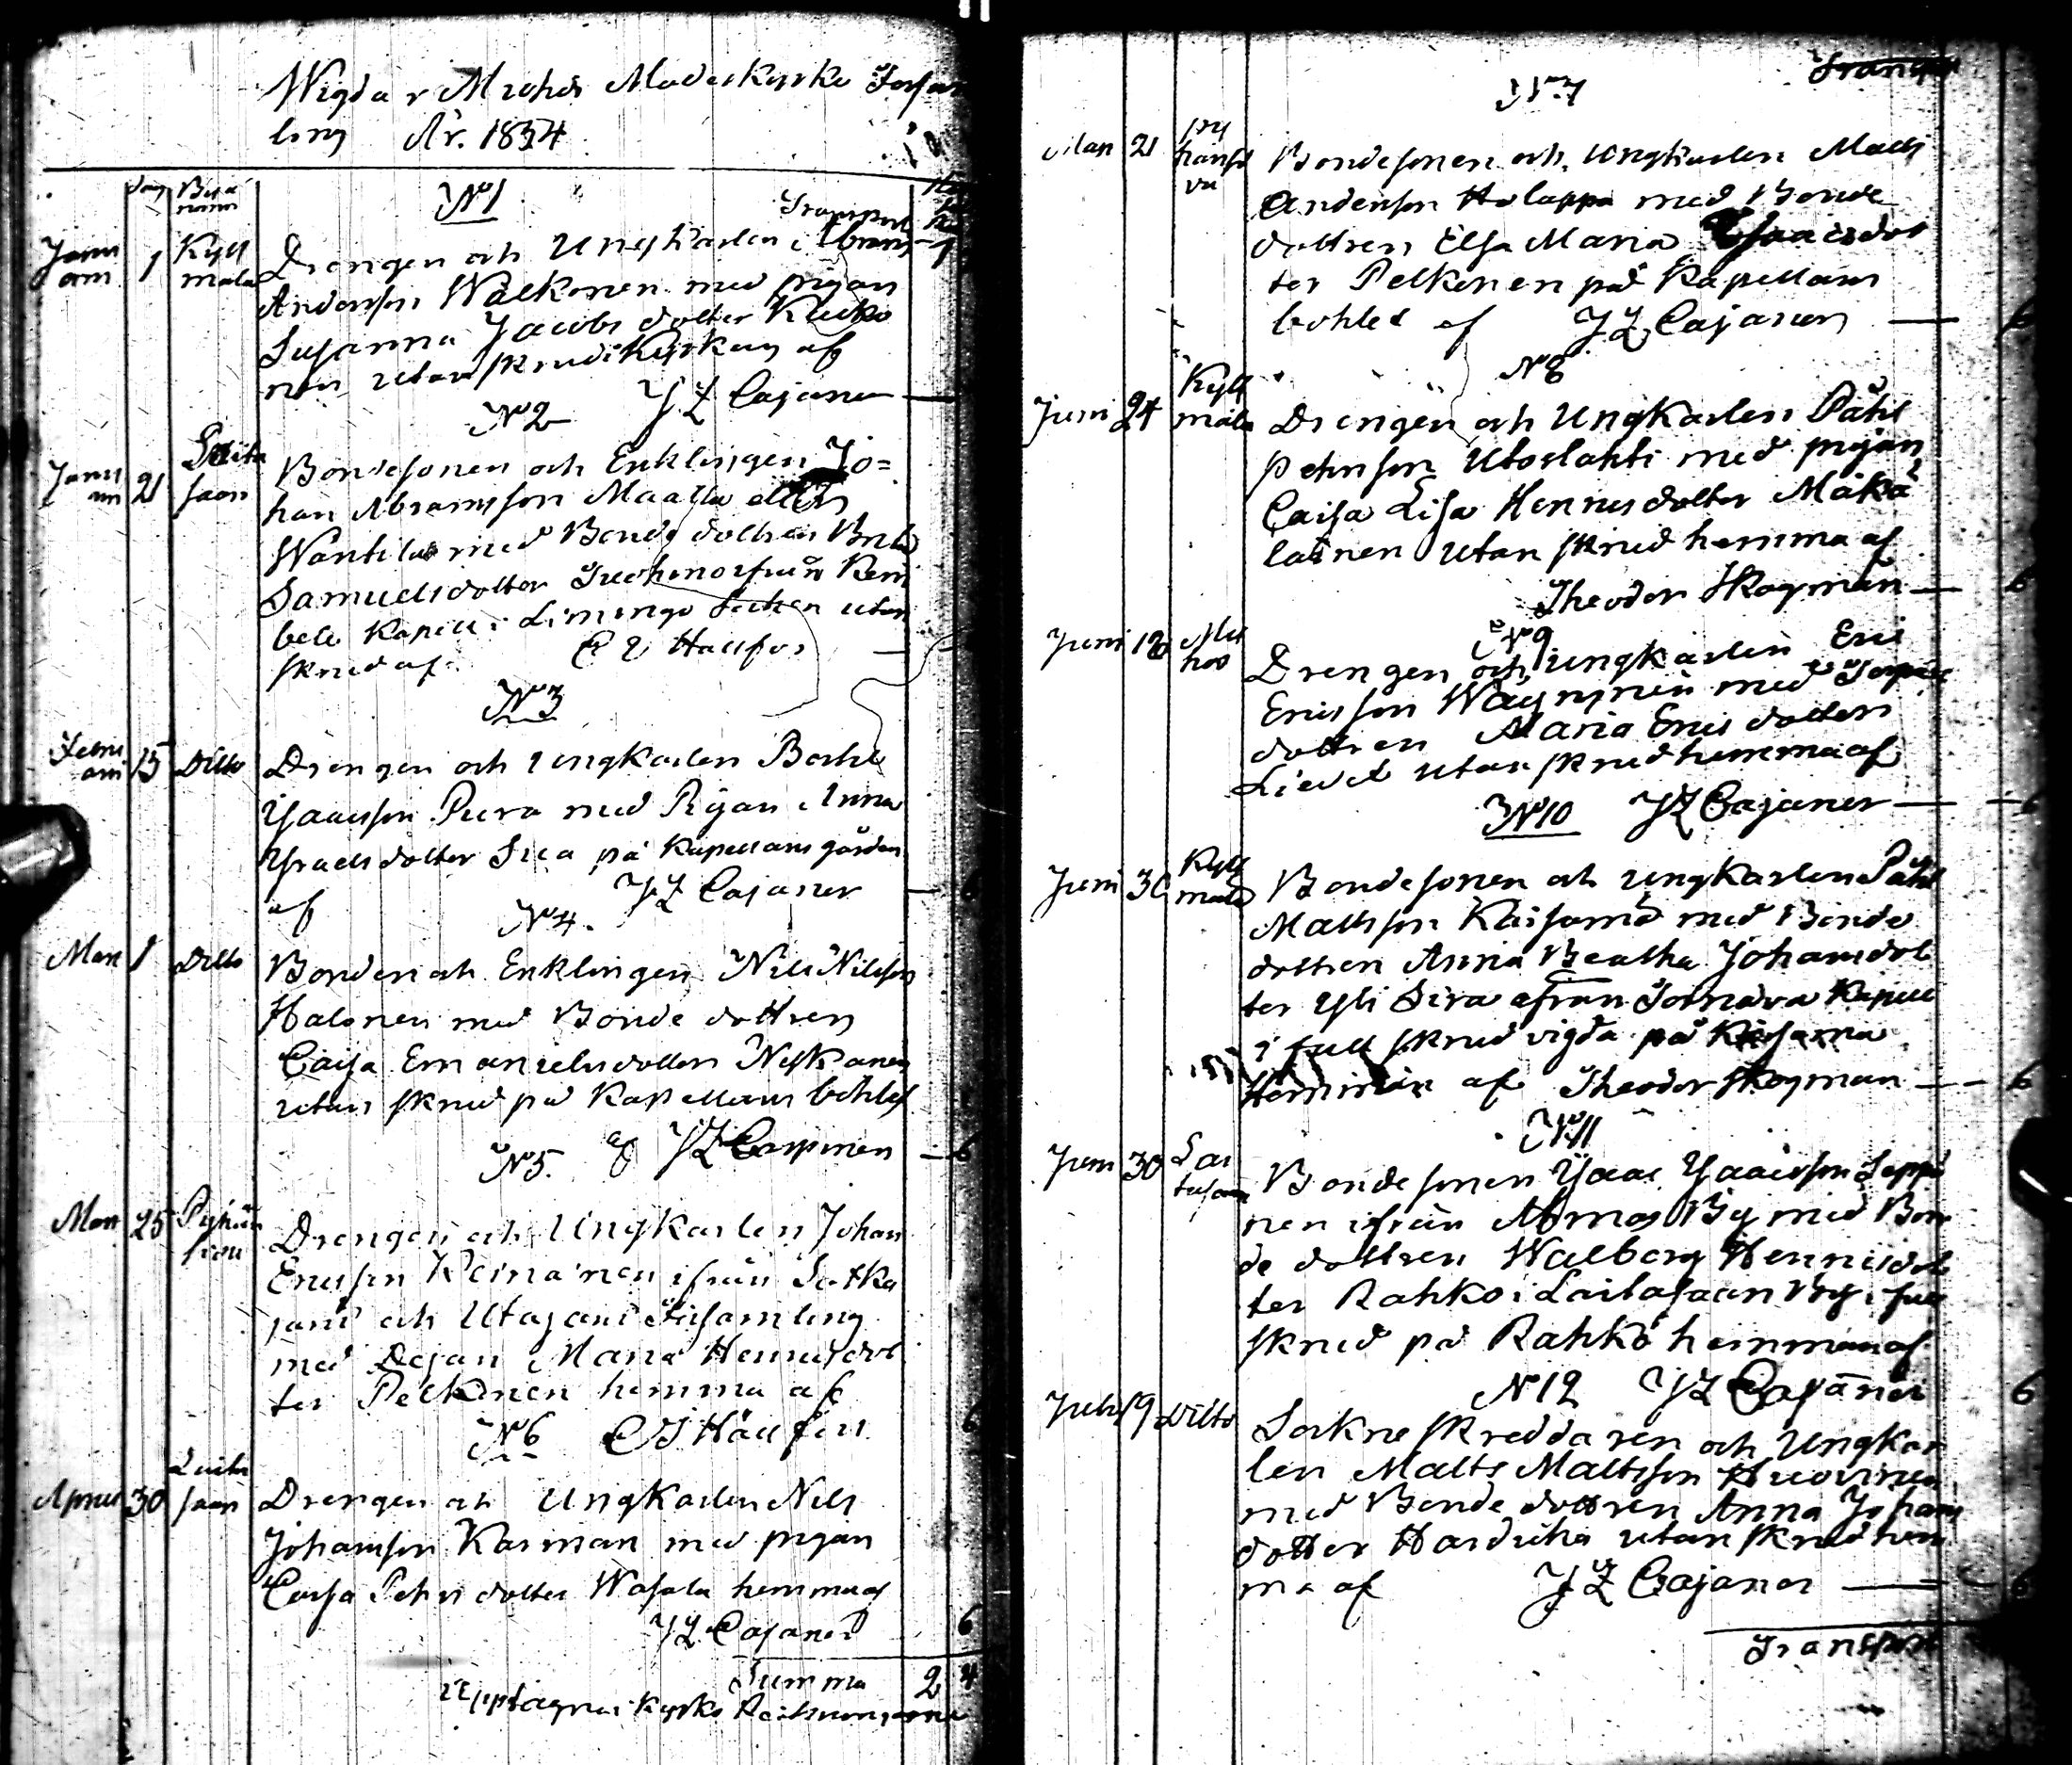 Wigda i Muhos Moderkyrko Försam
ling År. 1834
dag Byanamn
N:o 1
Transport
Janu
ari 1 Kyll
mälä Drengen och Ungkarlen Abram
Andersson Walkonen med pigan
Susanna Jacobs dotter Kukko
nen utan skrud i Kyrkan af
J Z Cajaner
N:o 2
Janu
ari 21 Laita
saari Bondesonen och Enklingen Jo=
han Abramsson Maalla eller
Wanttila med Bonde dottren Brita
Samuelsdotter från Kem
pele Kapell i Limingo Sochen utan
skrud af Hällfors
N:o 3
Febru
ari 15 Ditto Drengen och Ungkarlen
Isaacsson Pura med Pigan Anna
Israelsdotter Sua på Kapellans gården
af J Z Cajaner
N:o 4.
Mars 1 Ditto Bonden och Enklingen Nils Nilsson
Halonen med Bonde dottren
Caisa Emanuelsdotter Niskanen
utan skrud på Kapellans bohlet
af J Z Cajaner 6
N:o 5.
Mars 25 Drengen och Ungkarlen Johan
Ericsson Keinänen ifrån Sotka
och Utajärvi Församling
med Pigan Maria Henricsdot
ter Pelkonen hemma af
Hällfors 6
N:o 6
April 30 Laita
saari Drengen och Ungkarlen Nils
Johansson Karman med pigan
Caisa Pehrsdotter Wasala hemma af
J Z Cajaner 6
Summa 2 4
upptagna i Kyrko Räkningarne
Transport
N:o 7
Mars 21 Bondesonen och Ungkarlen Matts
Andersson Holappa med Bonde
dottren Elsa Maria Isaacsdot
ter Pelkonen på Kapellans
bohlet af J Z Cajaner 6
N:o 8
Juni 24 Kyll
mälä Drengen och Ungkarlen Påhl
Pehrsson Utoslahti med pigan
Caisa Lisa Henricsdotter Mäkä
lainen utan skrud hemma af
Theodor Skogman 6
N:o 9
Juni Mu
hos Drengen och Ungkarlen Eric
Ericsson Wäyrynen med Torpare
dottren Maria Ericsdotter
Liedes utan skrud hemma af
J Z Cajaner 6
N:o 10
Juni 30 Kyll
mälä Bondesonen och Ungkarlen Påhl
Mattsson Kaisamo med Bonde
dottren Anna Beatha Johansdot
ter Yli Sira från Kapell
i full skrud vigda på Kaisamo
Hemman af Theodor Skogman 6
N:o 11
Juni 30 Lai
tasaari Bondesonen Isaac Isaacsson Seppä
nen ifrån Ahmas By med Bon
de dottren Walborg Henricsdot
ter Rahko i Laitasaari By i full
skrud på Rahko hemman af
J Z Cajaner 6
N:o 12
Juli 19 Ditto Sockneskreddaren och Ungkar
len Matts Mattsson Huovinen
med Bonde dottren Anna Johans
dotter Harduka utan skrud hem
ma af J Z Cajaner 6
Transport